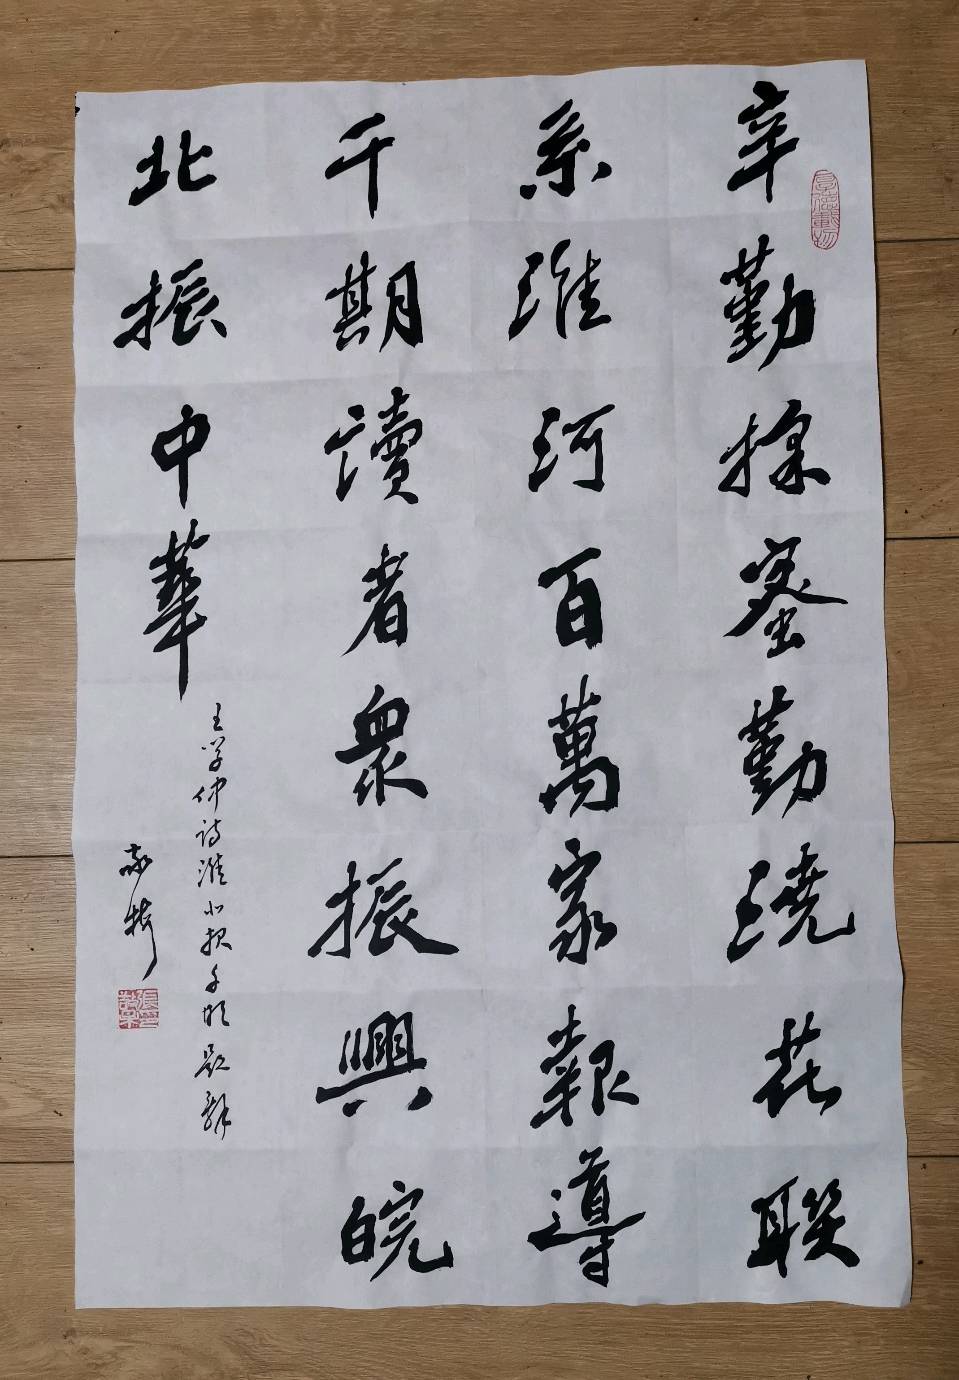 辛勤採蜜勤澆花聯
系淮河百萬家報導
千期讀者衆振興皖
北振中華
王学仲诗淮北报千期题辞